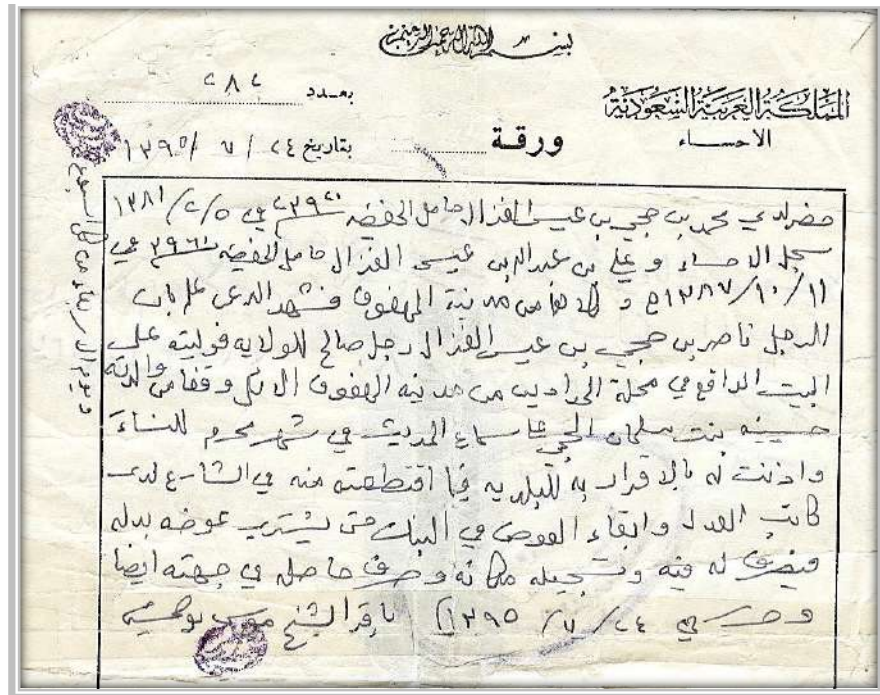 بسم الله الرحمن الرحيم
المملكة العربية السعودية
الاحساء
بعدد ٢٨٢
ورقة
بتاريخ ٢٤ / ٧ / ١٣٩٥
حضر لدي محمد بن حجي بن عيسى الغزال حامل الحفيظه في ٥/٢/١٣٨١
سجل الاحساء و علي بن عبدالله بن عيسى الغزال حامل الحفيظه في
١١/١٠/١٣٨٧ه و كلاهما من مدينة الهفوف فشهد لدي علي بان
الرجل ناصر بن حجي بن عيسى الغزال رجل صالح للولايه فوليته على
البيت الواقع في محلة من مدينه الهفوف وقفا من والدته
حسينه بنت سلمان الحجي على سماع الحديث في شهر محرم للنساء
واذنت له بالاقرار به للبلديه فيما اقتطعته منه في الشارع لدى
كاتب العدل وابقاء العوض في البنك حتى يشترى عوضه بدله
فيصرف له فيه وتسجيله مكانه وصرف حاصله في جهته ايضا
وحرر في ٢٤ / ٧ / ١٣٩٥ باقر الشيخ موسى بوخمسين